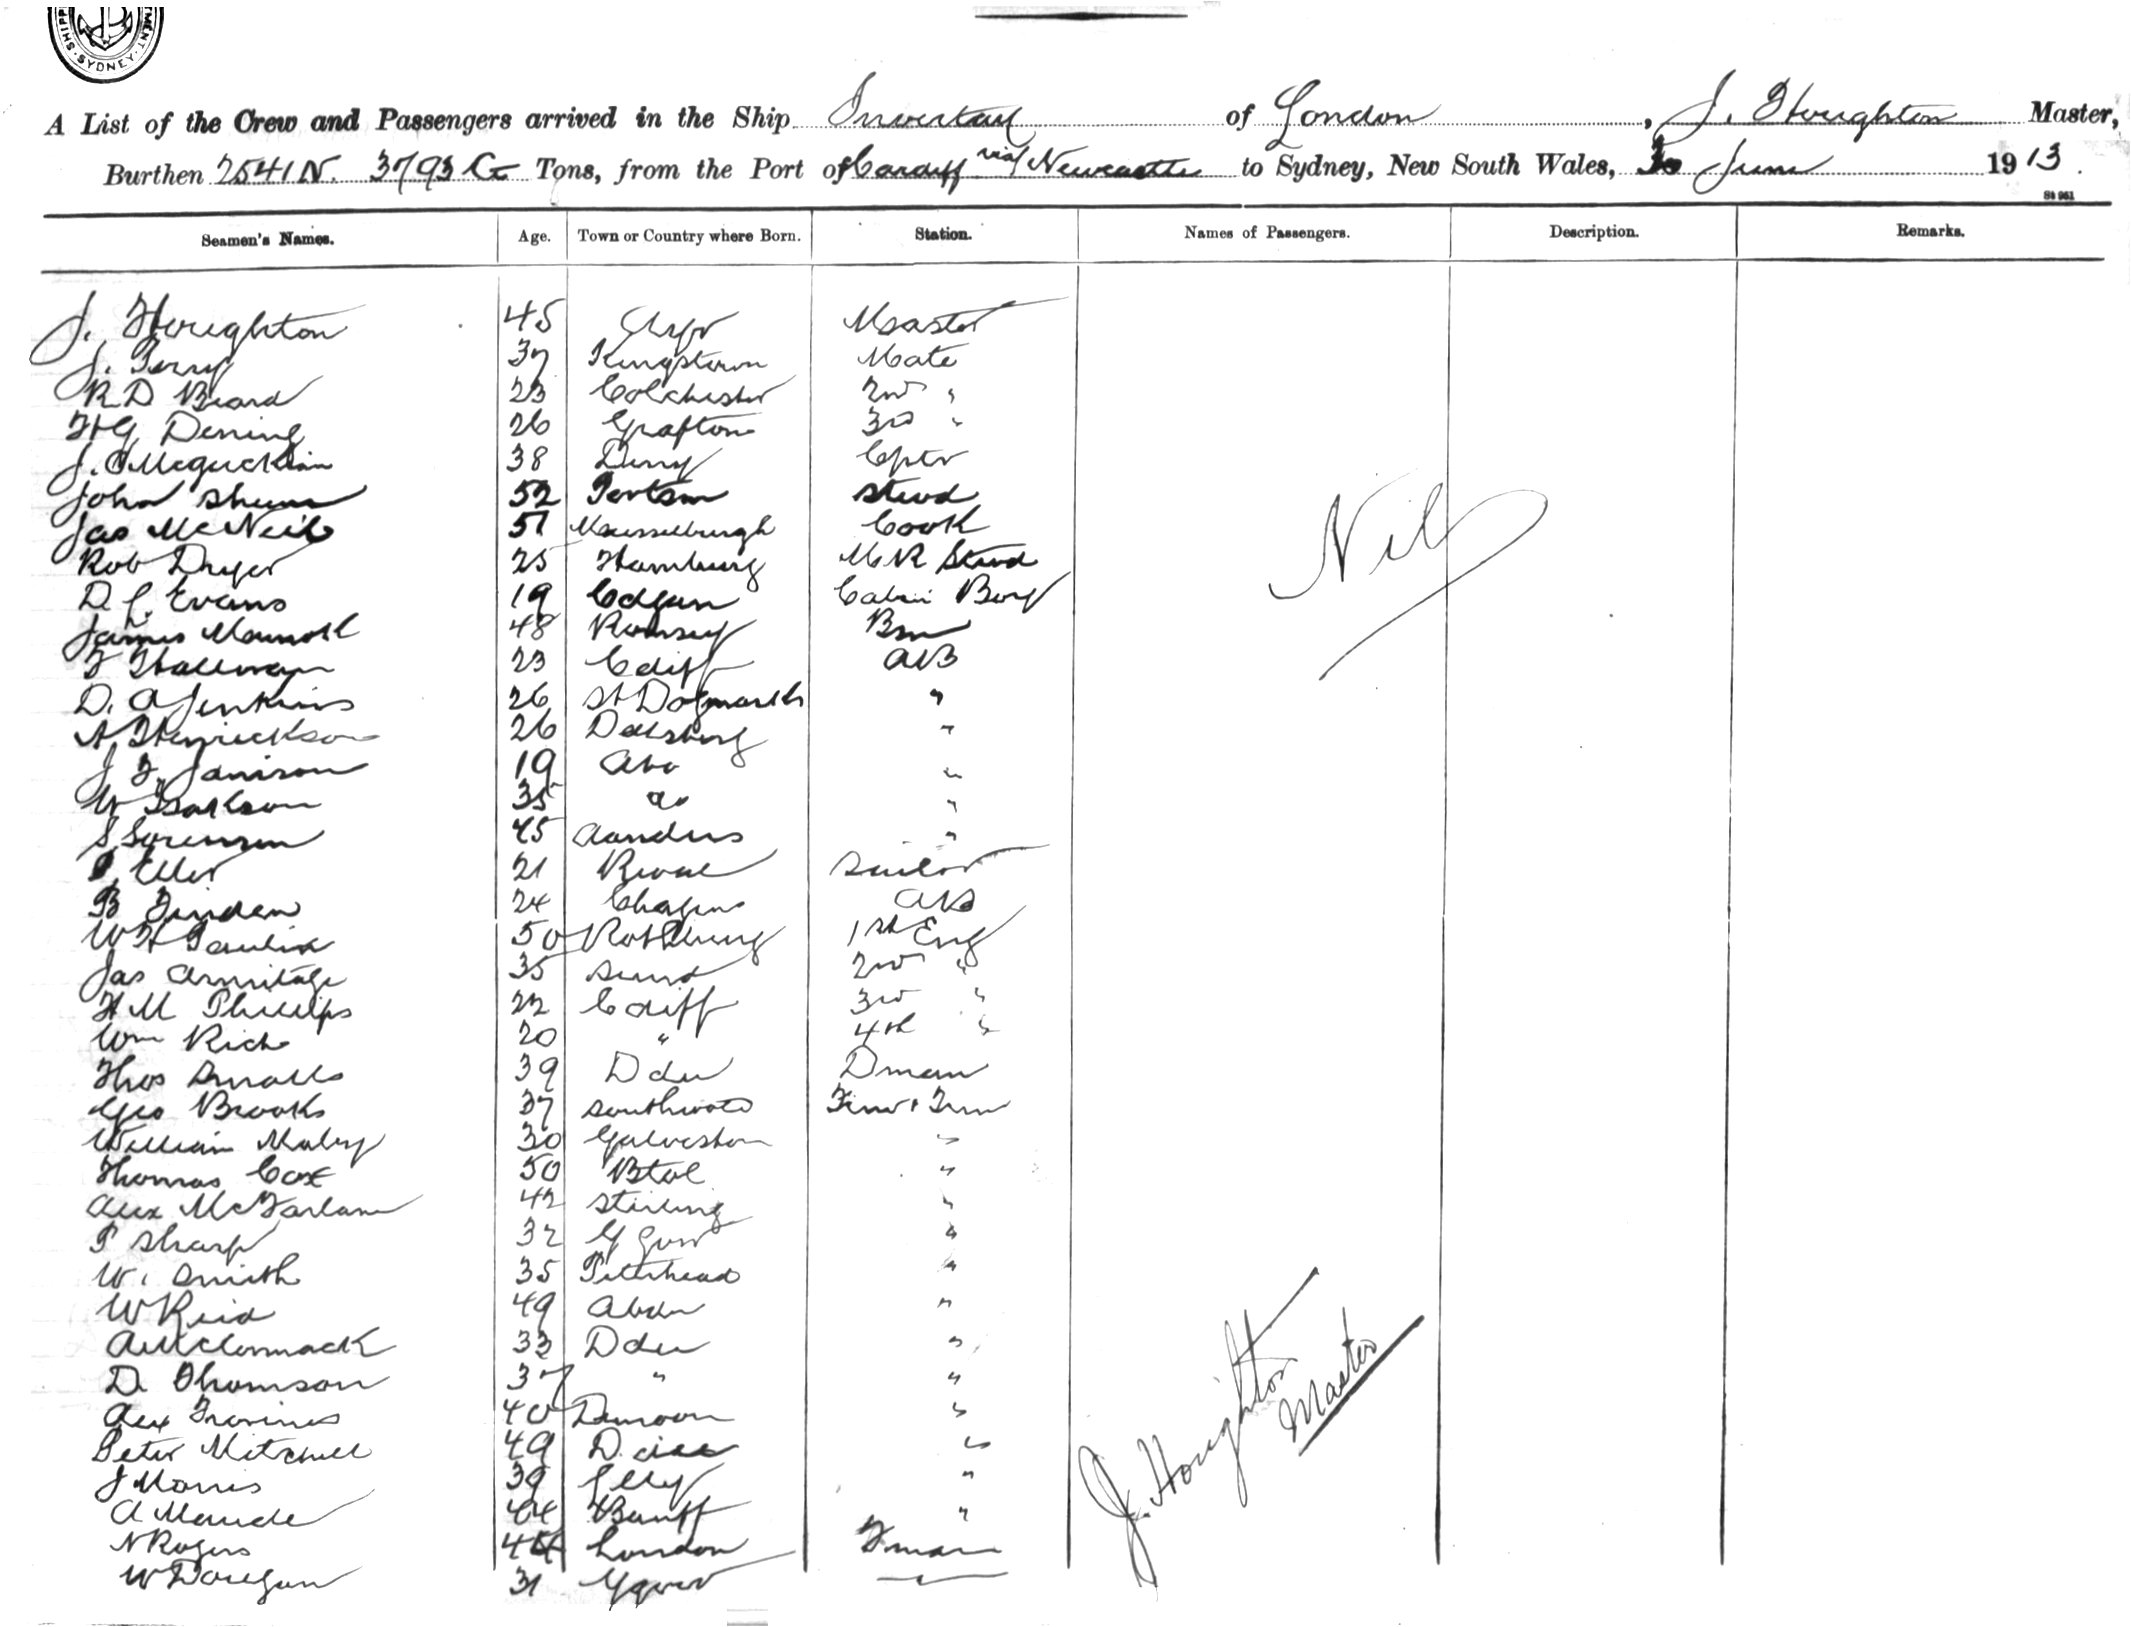 SYDNEY
A List of the Crew and Passengers arrived in the Ship of London, J. Houghton Master,
Burthen 2541 N. 3793 G Tons, from the Port of Cardiff via Newcastle to Sydney, New South Wales, June 1913.
St 961
Seamen's Names. Age. Town or Country where Born. Station. Names of Passengers. Description. Remarks.
J. Houghton 45 Ayr Master
J. Perry 37 Kingstown Mate
R D Beard 23 Colchester 2nd "
H G Dening 26 Grafton 3rd "
J. McGuckian 38 Derry Cptr
John 52 Stwd
Jas McNeil 51 Musselburgh Cook
Rob Dryer 25 Hamburg M R Stwd
D. J. Evans 19 Cdgan Cabin Boy
James 48 Romsey Bsn
23 Cdiff AB
D. A Jenkins 26 St Dogmaels "
A Henrickson 26 "
J. F. 19 Abo "
W Isakson 35 do "
S Sorensen 45 "
Eller 21 Reval Sailor
B 24 AB
W H 50 1st Eng
Jas Armitage 35 Sund 2nd "
H M Phillips 22 Cdiff 3rd "
Wm Rich 20 " 4th "
Thos Smalls 39 Ddee Dman
Geo Brooks 37 Fmn & Trm
William 30 Galveston "
Thomas Cox 50 Bstol "
Alex McFarlane 42 Stirling "
P Sharp 32 "
W. Smith 35 Peterhead "
W Reid 49 Abdn "
A McCormack 33 Ddee "
D. Thomson 37 " "
Alex 40 Dunoon "
Peter Mitchell 49 "
J Morris 39 "
A Maude 44 Banff "
N Rogers 44 London Fman
W 31
Nil
J. Houghton
Master